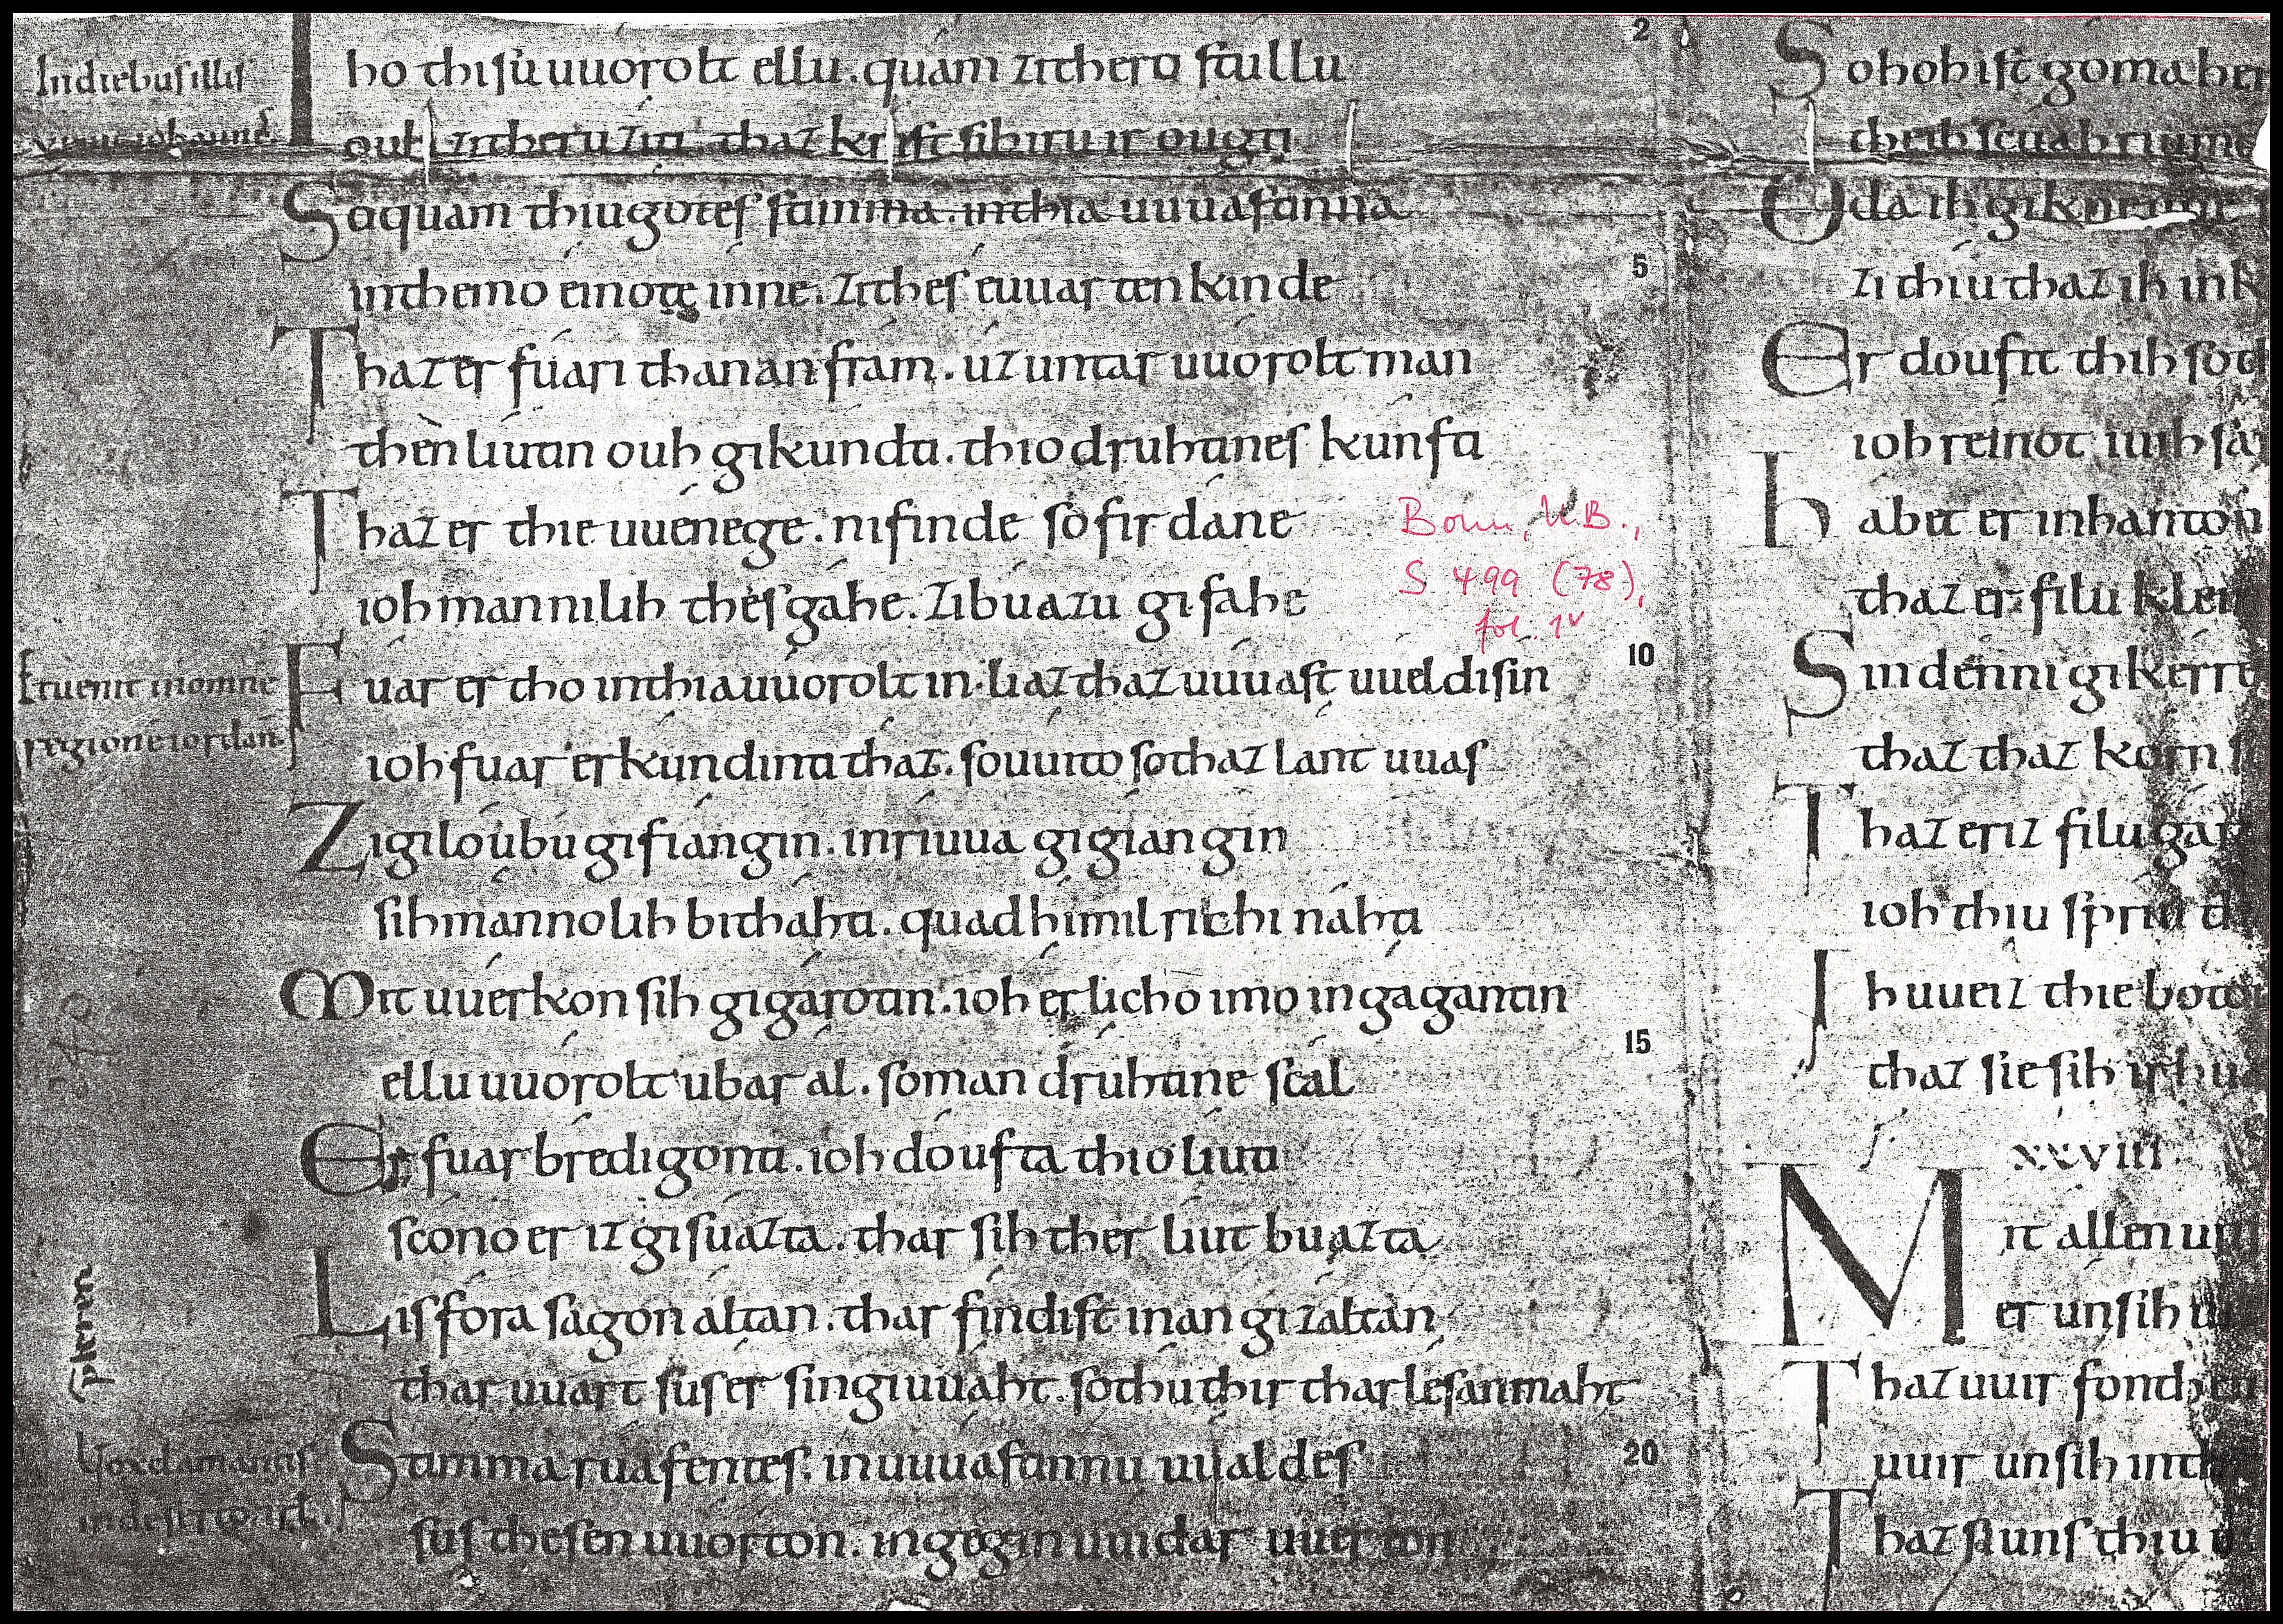 In diebus illis
Tho thisu uuorolt ellu. quam zi thero stullu
ouh zi theru ziti. thaz krist sih iru irougti
So quam thiu gotes stimma. in thia uuuastinna
in themo einote inne. zi thes euuarten kinde
Thaz er fuari thanan fram. uz untar uuoroltman
then liutin ouh gikundti. thio druhtines kunfti
Thaz er thie uuenege. ni finde so firdane
ioh mannilih thes gahe. zi buazu gifahe
Et uenit in omne
regione iordan
Fuar er tho in thia uuorolt in. liaz thaz uuuast uueldi sin
ioh fuar er kundinti thaz. so uuito so thaz lant uuas
Zi giloubu gifiangin. in riuua gigiangin
sih mannolih bithahti. quad himilrichi nahti
Mit uuerkon sih gigarotin. ioh erlicho imo ingagantin
ellu uuorolt ubar al. so man druhtine scal
Er fuar bredigonti. ioh doufta thio liuti
scono er iz gisuazta. thar sih ther liut buazta
Lis forasagon altan. thar findist inan gizaltan
thar uuart sus er sin giuuaht. so thu thir thar lesan maht
Uox clamantis
in deserto
Stimma ruafentes. in uuuastinnu uualdes
sus thesen uuorton. ingegin uuidaruuerton
2
5
10
15
20
Bonn, U.B.,
S 499 (78),
fol. 1v
So hoh ist goma her
Oda ih
zi thiu thaz ih in
Er doufit thih so
ioh reinot iuih
habet er in hanton
thaz er filu
Sin denni gikerre
thaz thaz korn
Thaz er iz filu
ioh thiu spriu
Ih uueiz thie boto
thaz sie sih
xxviii
Mit allen
er unsih
Thaz uuir fon
uuir unsih
Thaz si uns thiu